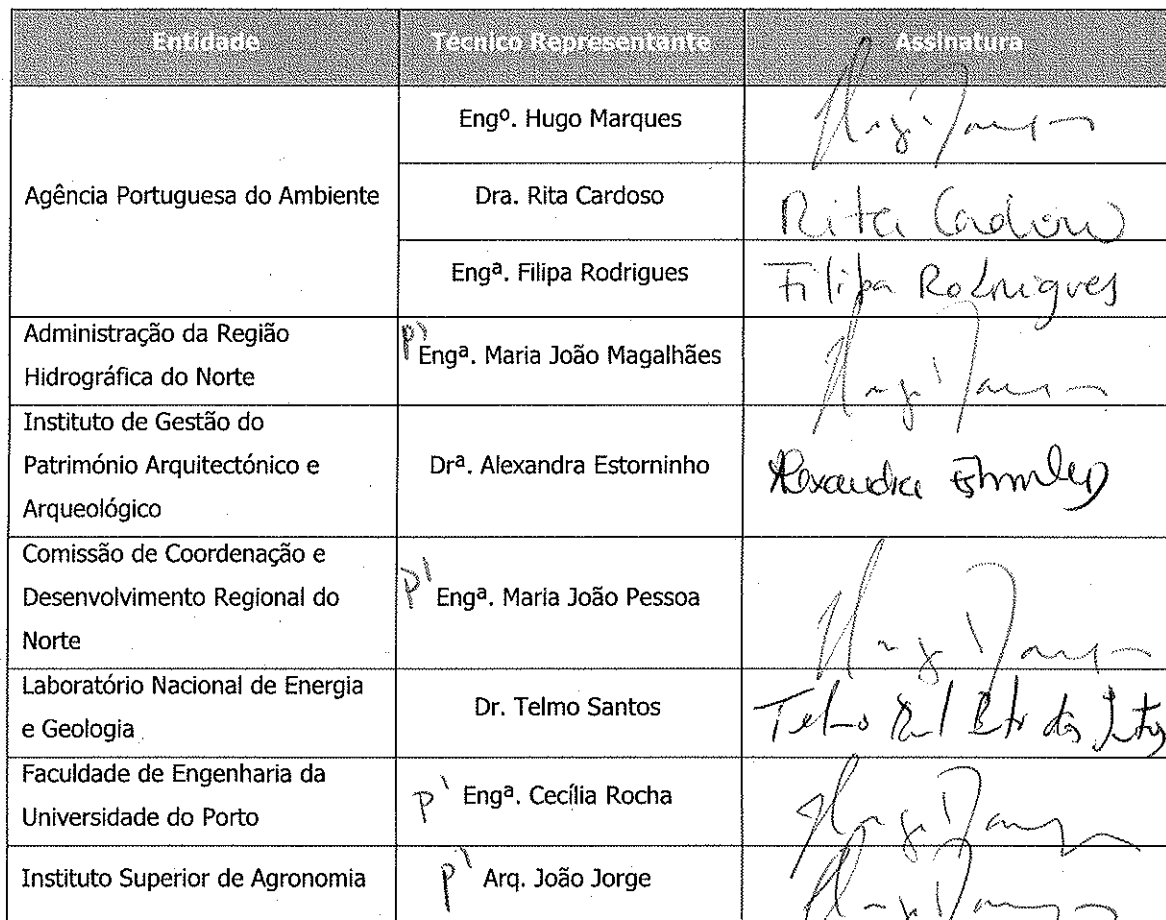 Entidade Técnico Representante Assinatura
Engº. Hugo Marques
Agência Portuguesa do Ambiente Dra. Rita Cardoso Rita Cardoso
Engª. Filipa Rodrigues Filipa Rodrigues
Administração da Região
Hidrográfica do Norte
p' Engª. Maria João Magalhães
Instituto de Gestão do
Património Arquitectónico e
Arqueológico
Drª. Alexandra Estorninho Alexandra
Comissão de Coordenação e
Desenvolvimento Regional do
Norte
p' Engª. Maria João Pessoa
Laboratório Nacional de Energia
e Geologia
Dr. Telmo Santos Telmo
Faculdade de Engenharia da
Universidade do Porto
p' Engª. Cecília Rocha
Instituto Superior de Agronomia p' Arq. João Jorge